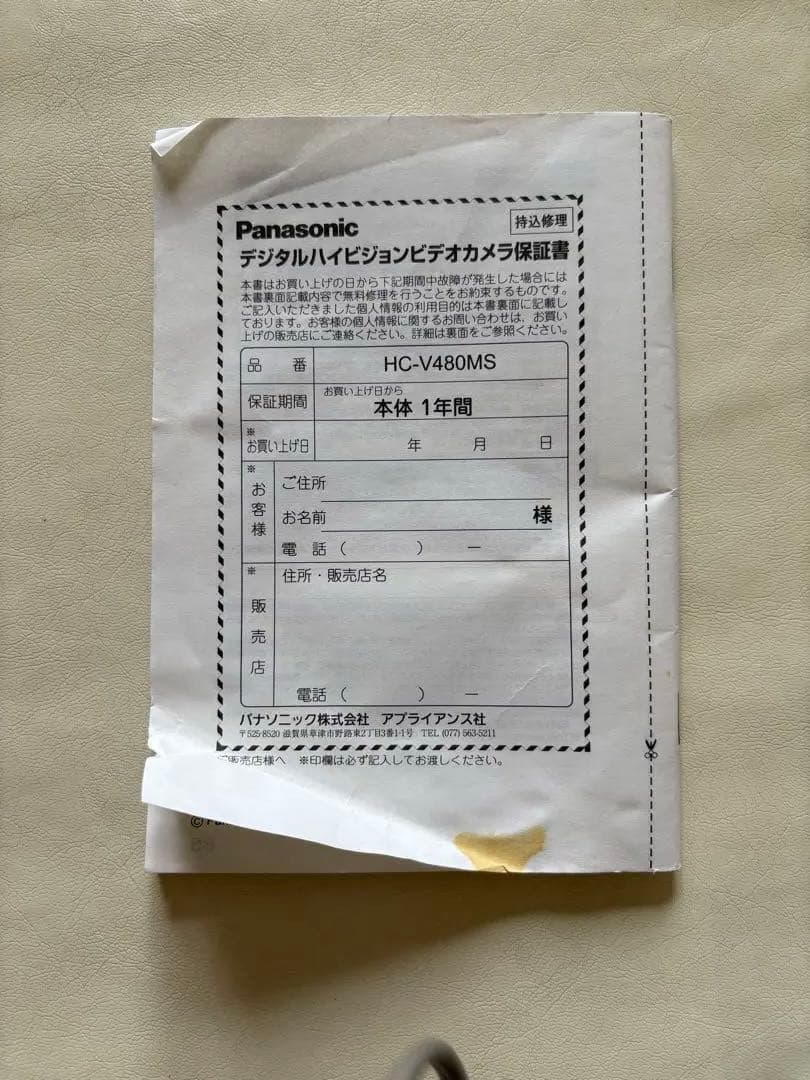 Panasonic
持込修理
デジタルハイビジョンビデオカメラ保証書
本書はお買い上げの日から下記期間中故障が発生した場合には
本書裏面記載内容で無料修理を行うことをお約束するものです。
ご記入いただきました個人情報の利用目的は本書裏面に記載し
ております。お客様の個人情報に関するお問い合わせは、お買い
上げの販売店にご連絡ください。詳細は裏面をご参照ください。
品番 HC-V480MS
保証期間 お買い上げ日から
本体 1年間
※お買い上げ日 年 月 日
※お客様
ご住所
お名前 様
電話 ( ) ―
※販売店
住所・販売店名
電話 ( ) ―
パナソニック株式会社 アプライアンス社
〒525-8520 滋賀県草津市野路東2丁目3番1-1号 TEL (077) 563-5211
販売店様へ ※印欄は必ず記入してお渡しください。
©